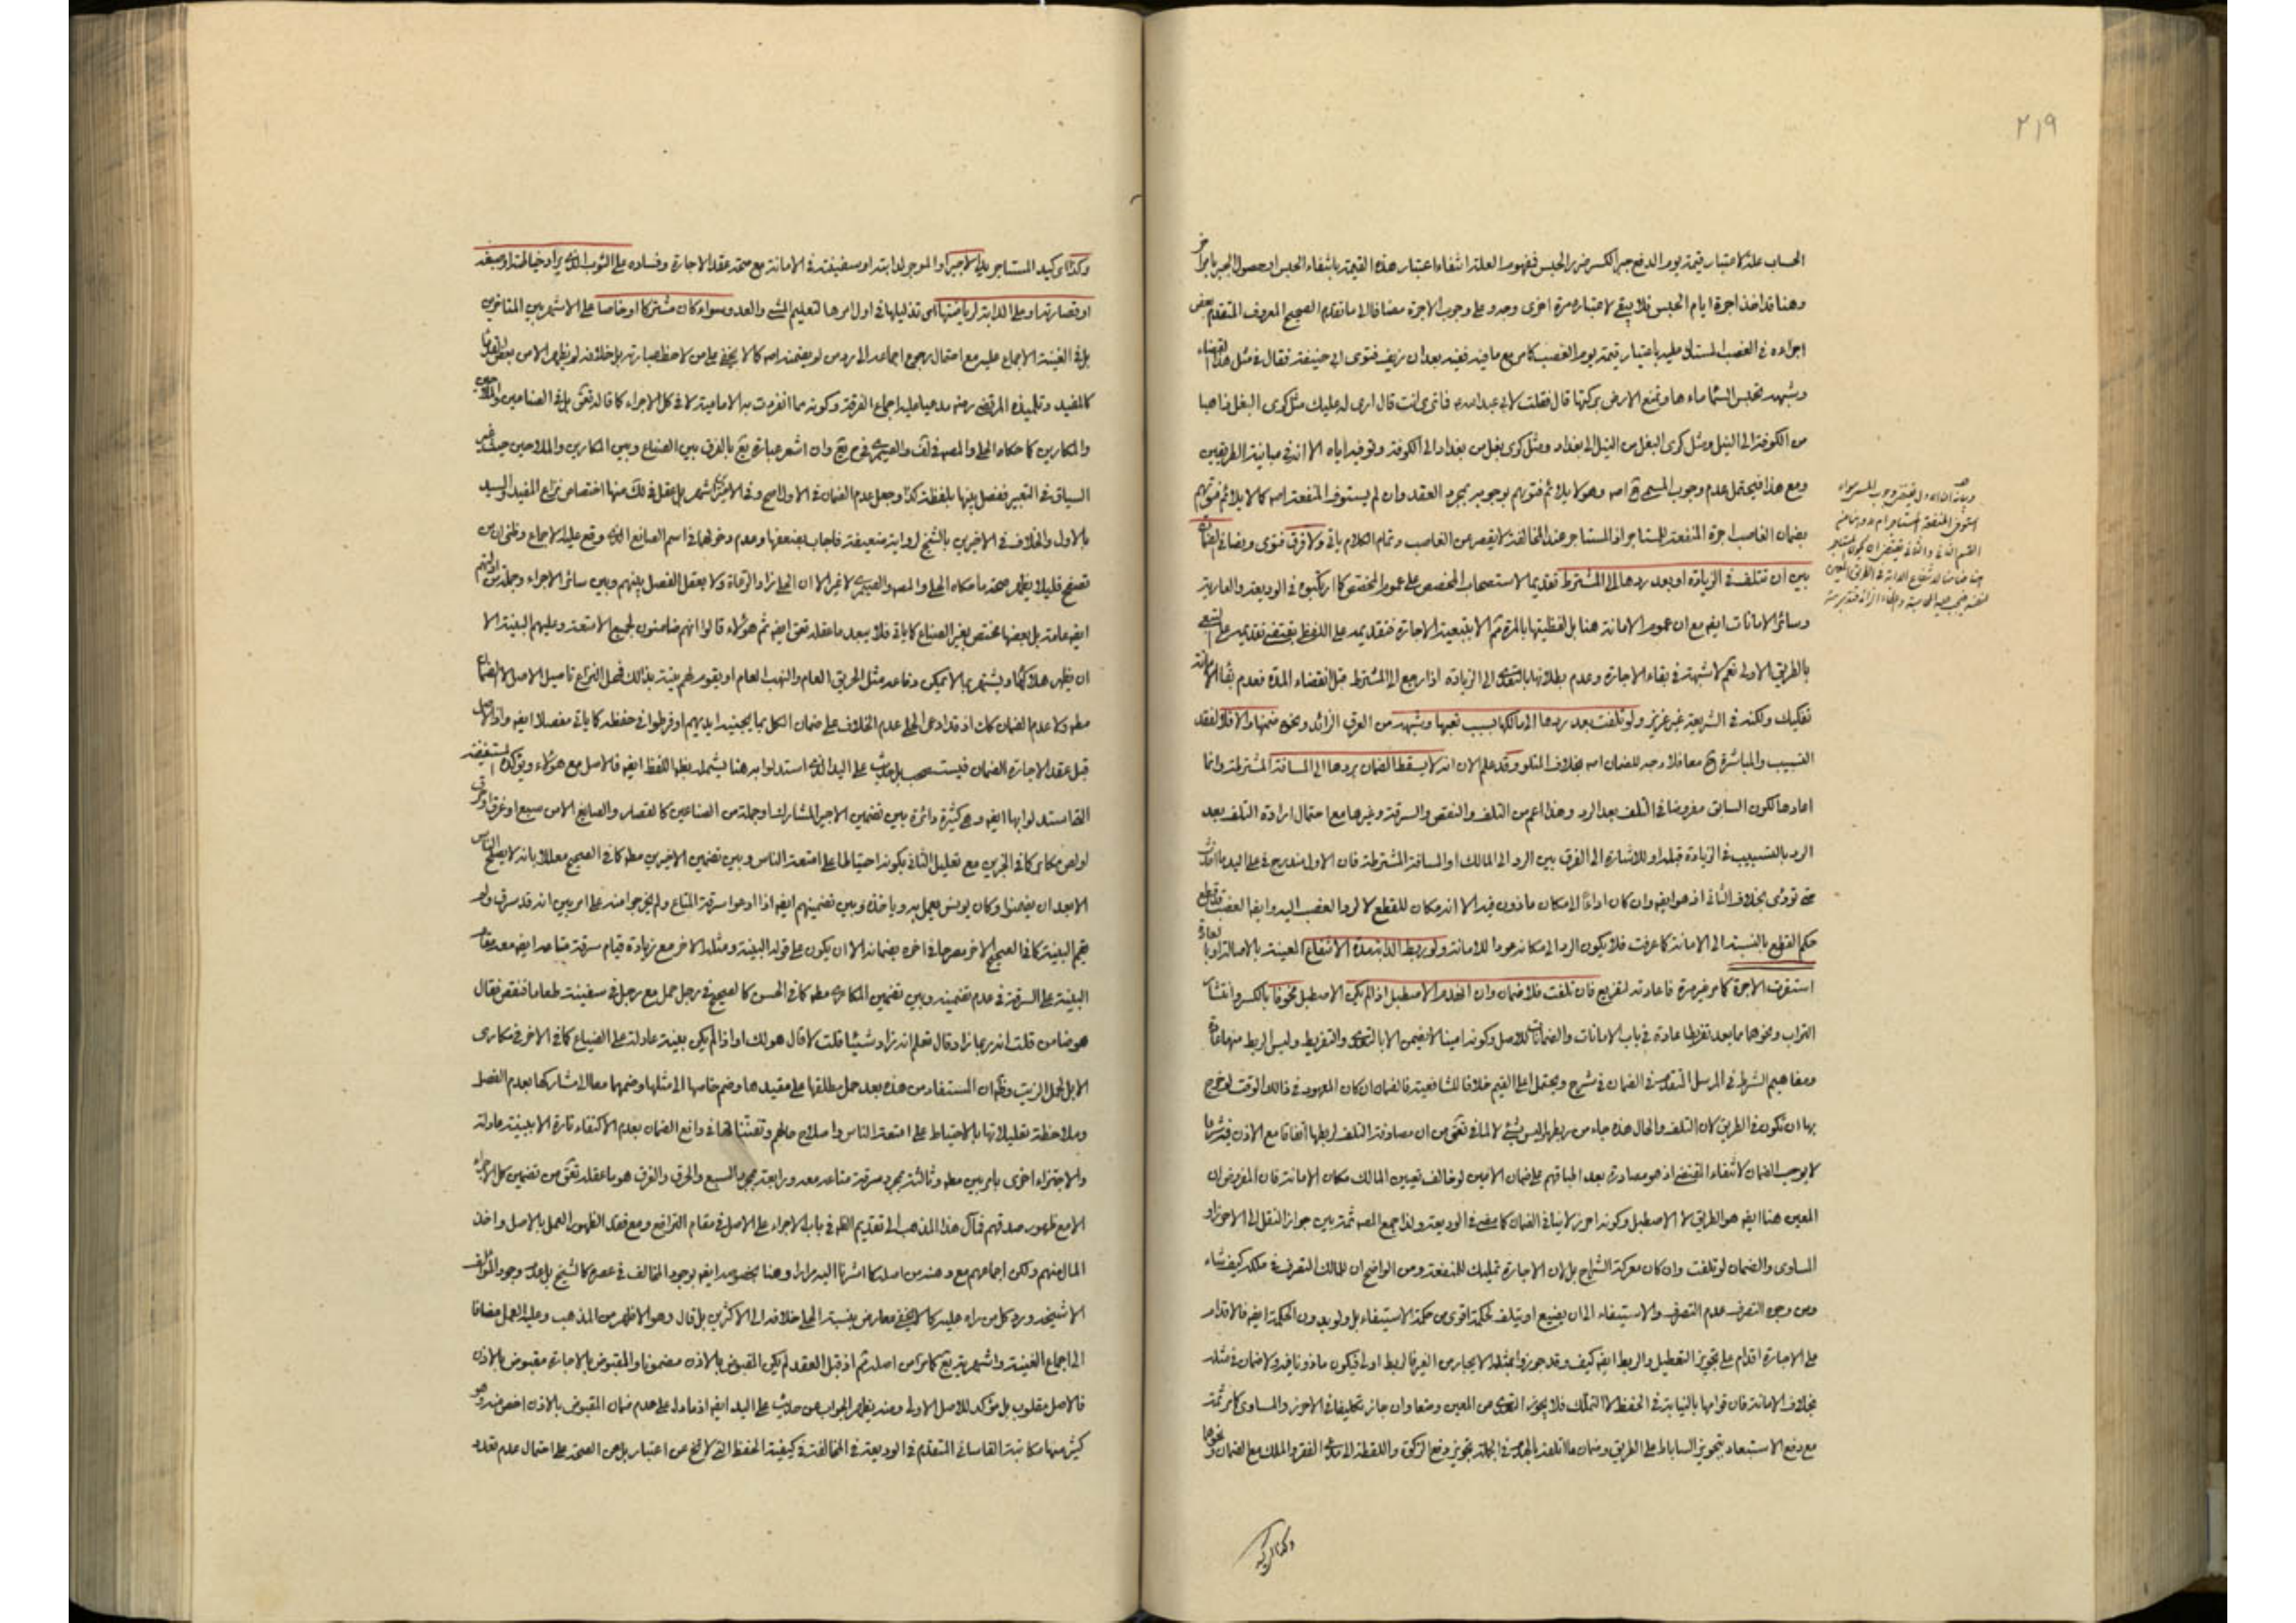 ٢١٩
الحساب علة لاعتبار قيمة يوم الدفع جبر الكسر ضرر الحبس فمفهوم العلة انتفاء اعتبار هذه القيمة بانتفاء الحبس او حصول الجبر بامر اخر
وهنا قد اخذ اجرة ايام الحبس فلا يبقى لاعتباره مرة اخرى وجه وعلى وجوب الاجرة مضافا الى ما تقدم الصحيح المعروف المتقدم بعض
اجزاءه في الغصب المستدل عليه باعتبار قيمة يوم الغصب كما مر مع ما فيه ففيه بعد ان زيف فتوى ابي حنيفة فقال في مثل هذا القضاء
وشبهه تحبس السماء ماءها وتمنع الارض بركتها قال فقلت لابي عبد الله فما ترى انت قال ارى له عليك مثل كرى البغل ذاهبا
من الكوفة الى النيل ومثل كرى البغل من النيل الى بغداد ومثل كرى بغل من بغداد الى الكوفة وتوفيه اياه الا انه في مباينة الطريقين
ومع هذا فيحتمل عدم وجوب المسمى ح اصه وهو لا يلائم فتويهم بوجوبه بمجرد العقد وان لم يستوف المنفعة اصه كما لا يلائم فتويهم
بضمان الغاصب اجرة المنفعة للمستاجر اذ المستاجر عند المخالفة لا يقصر عن الغاصب وتمام الكلام ياتي ولا فرق فتوى ونصا في الضمان
بين ان تتلف في الزيادة او بعد ردها الى المشترط تقديما لاستصحاب المخصص على عموم المخصص كما ارتكبوه في الوديعة والعارية
وسائر الامانات ايضه مع ان عموم الامانة هنا بل لفظيتها بالمرة ثم الا بتبعية الاجارة فتقديمه على اللفظ يقتضي تقديمه على التبعي
بالطريق الاولى نعم لا شبهة في بقاء الاجارة وعدم بطلانها بالتعدي الى الزيادة اذا رجع الى المشترط قبل انقضاء المدة فعدم بقاء الامانة
تفكيك ولكنه في الشريعة غير عزيز ولو تلفت بعد ردها الى مالكها بسبب تعبها وشبهه من العرق الزائد ونحوه ضمنها والا فلا لفقد
التسبيب والمباشرة ح معا فلا وجه للضمان اصه بخلاف المتلو وقد علم الان انه لا يسقط الضمان بردها الى المسافة المشترطة وانما
اعادها لكون السابق مفروضا في التلف بعد الرد وهذا اعم من التلف والنقص والسرقة وغيرها مع احتمال ارادة التلف بعد
الرد بالتسبيب في الزيادة قبله او للاشارة الى الفرق بين الرد الى المالك او المسافة المشترطة فان الاول مندرج في على اليد ما اخذت
حتى تؤدى بخلاف الثاني اذ هو ايضه وان كان اداءا الى مكان ماذون فيه الا انه مكان للقطع لا لرد الغصب اليه وايضا الغصب قطع
حكم القطع بالنسبة الى الامانة كما عرفت فلا يكون الرد الى مكانه عودا للامانة ولو ربط الدابة مدة الانتفاع المعينة بالاصالة او بالعادة
استقرت الاجرة كما مر غير مرة فاعادته لتفريع فان تلفت فلا ضمان وان انهدم الاصطبل اذا لم يكن الاصطبل مخوفا بالكسر وانتشار
التراب ونحوهما مما يعد تفريطا عادة في باب الامانات والضمانات للاصل وكونه امينا لا يضمن الا بالتعدي والتفريط وليس الربط منهما عادة
ومفاهيم الشرط في المرسل المتقدمين في الضمان في شرح ويحتمل اعلى القيم خلافا للشافعية فالضمان ان كان المعهود في ذلك الوقت لو خرج
بها ان تكون في الطريق لان التلف والحال هذه جاء من ربطها وليس بشيء لا لما في تعق من ان مصادفة التلف لربطها اتفاقا مع الاذن فيه شرعا
لا يوجب الضمان لانتفاء المقتضي اذ هو مصادرة بعد اطباقهم على ضمان الامين لو خالف تعيين المالك مكان الامانة فان المفروض ان
المعين هنا ايضه هو الطريق لا الاصطبل وكونه احرز لا ينافي الضمان كما مضى في الوديعة ولذا جمع المصه ثمة بين جواز النقل الى الاحرز او
المساوى والضمان لو تلفت وان كان معركة الشراح بل لان الاجارة تمليك للمنفعة ومن الواضح ان للمالك التصرف في ملكه كيف شاء
ومن وجوه التصرف عدم التصرف والاستيفاء الى ان يضيع او يتلفه لحكمة اقوى من حكمة الاستيفاء بل ولو بدون الحكمة ايضه فالاقدام
على الاجارة اقدام على تجويز التعطيل والربط ايضه كيف وقد جوزوا بمثله الايجار من الغير فالربط اولى فيكون ماذونا فيه ولا ضمان في مثله
بخلاف الامانة فان قوامها بالنيابة في الحفظ لا التملك فلا يجوز التعدي عن المعين ومتعا وان جاز تكليفا في الاحرز والمساوى كما مر ثمة
مع دفع الاستبعاد بتجويز الساباط على الطريق وضمان ما اتلفه بالهدم في الجملة بتجويز دفع الزكوة واللقطة الى مدعي الفقر والملك مع الضمان ونحوها
وكذا لو كيد
وكذا اى كيد المستاجر يد الاجير او الموجر لدابته او سفينته في الامانة مع صحة عقد الاجارة وفساده على الثوب الذي يراد خياطته او صبغه
او قصارته او على الدابة لرياضتها اى تذليلها في اول امرها لتعليم المشي والعدو سواء كان مشتركا او خاصا على الاشهر بين المتاخرين
بل في الغنية الاجماع عليه مع احتمال رجوع اجماعه الى ردس لو يضمنه اصه كما لا يخفى على من لاحظ عبارته بل خلافه لو يظهر الا من بعض القدماء
كالمفيد وتلميذه المرتضى رضه مدعيا عليه اجماع الفرقة وكونه مما انفردت به الامامية لا في كل الاجراء كما قاله تعق بل في الصناعين والملاحين
والمكارين كما حكاه الحلي والمصه في لف والصيمرى في ح يع وان اشعر عبارة يع بالفرق بين الصناع وبين المكارين والملاحين حيث غير
السياق في التعبير ففصل بينها بلفظة كذا وجعل عدم الضمان في الاول اصح وفي الاخيرين اشهر بل عقل في لك منها اختصاص نزاع المفيد والسيد
بالاول والخلاف في الاخيرين بالشيخ لرواية ضعيفة فاجاب بضعفها وعدم دخولهما في اسم الصانع الذي وقع عليه الاجماع وظني ان من
تصفح قليلا يظهر صحة ما حكاه الحلي والمصه والصيمرى لا غير الا ان الحلي زاد الرعاة ولا يعقل الفصل بينهم وبين سائر الاجراء وجملة من ادلتهم
ايضه عامة بل بعضها مختص بغير الصناع كما ياتي فلا يبعد ما عقله تعق ايضه ثم هؤلاء قالوا انهم ضامنون لجميع الامتعة وعليهم البينة الا
ان يظهر هلاكها ويشتهر بما لا يمكن دفاعه مثل الحريق العام والنهب العام او يقوم لهم بينة بذلك فمحل النزاع تاصيل الاصل الا الضمان
مطه ولا عدم الضمان كك اذ قد ادعى الحلي عدم الخلاف على ضمان الكل بما يجنيه ايديهم او فرطوا في حفظه كما ياتي مفصلا ايضه واذ الاصل
قبل عقد الاجارة الضمان فيستصحب بل حديث على اليد الذي استدلوا به هنا يشمله بظه اللفظ ايضه فالاصل مع هؤلاء ويؤكده المستفيضة
التي استدلوا بها ايضه وهي كثيرة دائرة بين تضمين الاجير المشارك او جملة من الصناعين كالقصار والصايغ الا من سبع او غرق او حرق
او لص مكابر كما في الخبرين مع تعليل الثاني بكونه احتياطا على امتعة الناس وبين تضمين الاخيرين مطه كما في الصحيح معللا بانه لا يصلح الناس
الا بعد ان يضمنوا وكان يونس يعمل به وياخذه وبين تضمينهم ايضه اذا ادعوا سرقة المتاع ولم يخرجوا منه على امر بين انه قد سرق ولم
يقم البينة كما في الصحيح الاخر مصرحا في اخره بضمانه الا ان يكون على قوله البينة ومثله الاخر مع زيادة قيام سرقة متاعه ايضه معه مقام
البينة على السرقة في عدم تضمينه وبين تضمين المكارى مطه كما في الحسن كالصحيح في رجل حمل مع رجل في سفينة طعاما فنقص فقال
هو ضامن قلت انه ربما زاد قال تعلم انه زاد شيئا قلت لا قال هو لك او اذا لم يكن بينة عادلة على الضياع كما في الاخر في مكارى
الابل لحمل الزيت وظه ان المستفاد من هذه بعد حمل مطلقها على مقيدها وضم خاصها الى مثلها وضمهما معا الى مشاركها بعدم الفصل
وملاحظة تعليلاتها بالاحتياط على امتعة الناس واصلاح حالهم وتفتننا لها في دافع الضمان بعدم الاكتفاء تارة الا ببينة عادلة
والاجتزاء اخرى بامر بين مطه وثالثة بمجرد سرقة متاعه معه ورابعة بمجرد السبع والحرق والغرق هو ما عقله تعق من تضمين كل الاجراء
الا مع ظهور صدقهم فمآل هذا المذهب الى تقديم الظه في باب الاجراء على الاصل في مقام الترافع ومع فقد الظهور العمل بالاصل واخذ
المال منهم ولكن اجماعهم مع وهنه من اصله كما اشرنا اليه مرارا وهنا بخصوصه ايضه بوجود المخالف في عصره كالشيخ بل عدم وجود الموافق
الا شيخه ورد كل من راه عليه كما لا يخفى معارض بنسبة الحلي خلافه الى الاكثرين بل قال وهو الاظهر من المذهب وعليه العمل مضافا
الى اجماع الغنية واشهرية يع كما مر اس اصله ثم اذ قبل العقد لم يكن المقبوض بالاذن مضمونا والمقبوض بالاجارة مقبوض بالاذن
فالاصل مقلوب بل مؤكد للاصل الاولى ومنه يظهر الجواب عن حديث على اليد ايضه اذ ما دل على عدم ضمان المقبوض بالاذن اخص منه وهو
كثير منها مكاتبة القاساني المتقدم في الوديعة في المخالفة في كيفية الحفظ التي لا تخ عن اعتبار بل عن الصحة على احتمال عدم تعدد